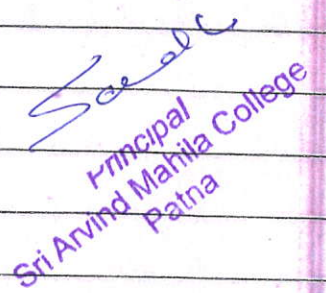 Principal
Sri Arvind Mahila College
Patna